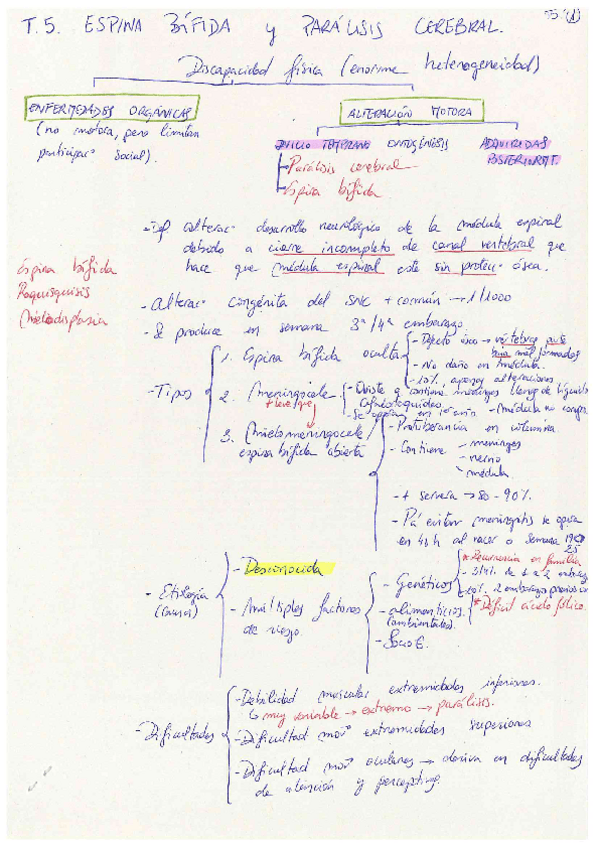 T.5. ESPINA BÍFIDA y PARÁLISIS CEREBRAL.
Discapacidad física (enorme heterogeneidad)
ENFERMEDADES ORGÁNICAS
(no motora, pero limitan
participac° social).
ALTERACIÓN MOTORA
INICIO TEMPRANO ONTOGÉNESIS
Parálisis cerebral
Espina bífida
ADQUIRIDAS
POSTERIORMT.
Espina bífida
Raquisquisis
Mielodisplasia
- Df alterac° desarrollo neurológico de la médula espinal
debido a cierre incompleto de canal vertebral que
hace que médula espinal esté sin protec° ósea.
- Alterac° congénita del SNC + común → 1/1000
- Se produce en semana 3ª/4ª embarazo
- Tipos
1. Espina bífida oculta
- Defecto óseo → vertebras
mal formadas
- No daño en médula.
- 10%, apenas alteraciones
2. Meningocele
+ leve que
- Quiste q contiene meninges lleno de líquido
cefaloraquídeo.
- Se opera en 1er año
- Médula no
3. Mielomeningocele/
espina bífida abierta
- Protuberancia en columna
- Contiene
- meninges
- nervio
- médula.
- + severa → 80-90%.
- Pa evitar meningitis se opera
en 48h al nacer o semana
- Etiología
(causas)
- Desconocida
- Múltiples factores
de riesgo.
- Genéticos
* Recurrencia en familia
2 embarazos previos
- alimenticios.
(ambientales).
* Déficit ácido fólico.
- SocioE.
- Dificultades
- Debilidad muscular extremidades inferiores.
↳ muy variable → extremo → parálisis.
- Dificultad mov° extremidades superiores
- Dificultad mov° oculares → deriva en dificultades
de atención y perceptivas.